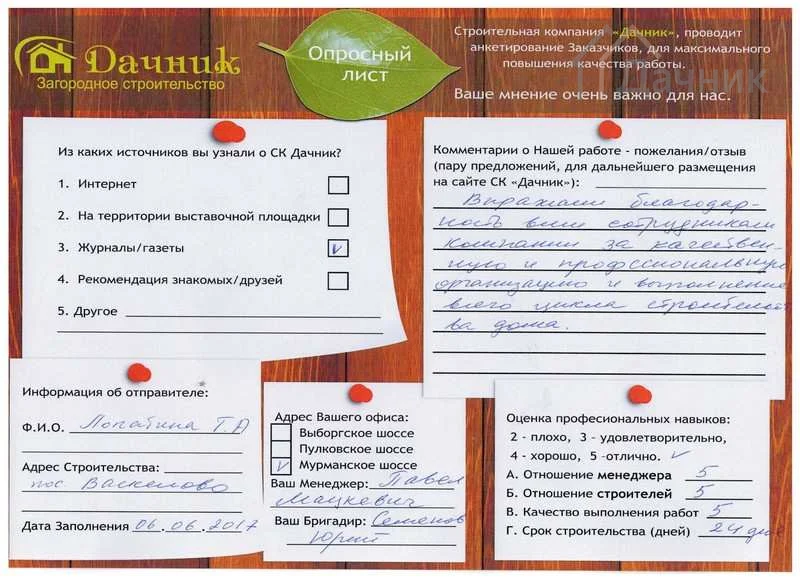 Дачник
Загородное строительство
Опросный
лист
Строительная компания «Дачник», проводит
анкетирование Заказчиков, для максимального
повышения качества работы.
Ваше мнение очень важно для нас.
Дачник
Из каких источников вы узнали о СК Дачник?
1. Интернет
2. На территории выставочной площадки
3. Журналы/газеты
4. Рекомендация знакомых/друзей
5. Другое
Комментарии о Нашей работе - пожелания/отзыв
(пару предложений, для дальнейшего размещения
на сайте СК «Дачник»):
Выражаем благодар-
ность всем сотрудникам
компании за качествен-
ную и профессиональную
организацию и выполнение
всего цикла строительст
ва дома.
Информация об отправителе:
Ф.И.О. Лопатина Т.А
Адрес Строительства:
пос. Васкелово
Дата Заполнения 06.06.2017
Адрес Вашего офиса:
Выборгское шоссе
Пулковское шоссе
Мурманское шоссе
Ваш Менеджер: Павел
Мацкевич
Ваш Бригадир: Семенов
Юрий
Оценка професиональных навыков:
2 - плохо, 3 - удовлетворительно,
4 - хорошо, 5 -отлично.
А. Отношение менеджера 5
Б. Отношение строителей 5
В. Качество выполнения работ 5
Г. Срок строительства (дней) 24 дня